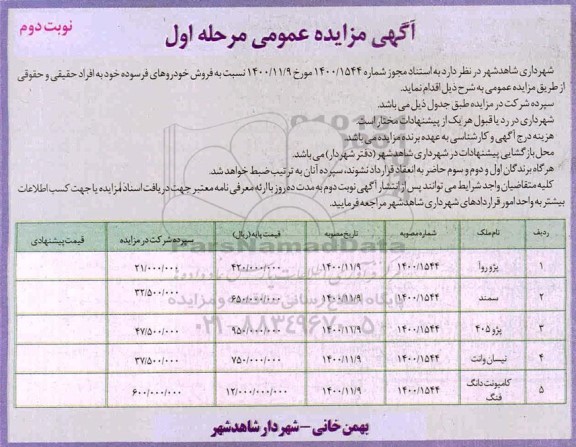 آگهی مزایده عمومی مرحله اول
نوبت دوم
شهرداری شاهدشهر در نظر دارد به استناد مجوز شماره ۱۴۰۰/۱۵۴۴ مورخ ۱۴۰۰/۱۱/۹ نسبت به فروش خودروهای فرسوده خود به افراد حقیقی و حقوقی
از طریق مزایده عمومی به شرح ذیل اقدام نماید.
سپرده شرکت در مزایده طبق جدول ذیل می باشد.
شهرداری در رد یا قبول هر یک از پیشنهادات مختار است.
هزینه درج آگهی و کارشناسی به عهده برنده مزایده می باشد.
محل بازگشایی پیشنهادات در شهرداری شاهدشهر (دفتر شهردار) می باشد.
هرگاه برندگان اول و دوم و سوم حاضر به انعقاد قرارداد نشوند، سپرده آنان به ترتیب ضبط خواهد شد.
کلیه متقاضیان واجد شرایط می توانند پس از انتشار آگهی نوبت دوم به مدت ده روز با ارئه معرفی نامه معتبر جهت دریافت اسناد مزایده یا جهت کسب اطلاعات
بیشتر به واحد امور قراردادهای شهرداری شاهدشهر مراجعه فرمایید.
ردیف نام ملک شماره مصوبه تاریخ مصوبه قیمت پایه (ریال) سپرده شرکت در مزایده قیمت پیشنهادی
۱ پژو روآ ۱۴۰۰/۱۵۴۴ ۱۴۰۰/۱۱/۹ ۴۲۰/۰۰۰/۰۰۰ ۲۱/۰۰۰/۰۰۰
۲ سمند ۱۴۰۰/۱۵۴۴ ۱۴۰۰/۱۱/۹ ۶۵۰/۰۰۰/۰۰۰ ۳۲/۵۰۰/۰۰۰
۳ پژو ۴۰۵ ۱۴۰۰/۱۵۴۴ ۱۴۰۰/۱۱/۹ ۹۵۰/۰۰۰/۰۰۰ ۴۷/۵۰۰/۰۰۰
۴ نیسان وانت ۱۴۰۰/۱۵۴۴ ۱۴۰۰/۱۱/۹ ۷۵۰/۰۰۰/۰۰۰ ۳۷/۵۰۰/۰۰۰
۵ کامیونت دانگ فنگ ۱۴۰۰/۱۵۴۴ ۱۴۰۰/۱۱/۹ ۱۲/۰۰۰/۰۰۰/۰۰۰ ۶۰۰/۰۰۰/۰۰۰
ParsNamadData
پایگاه اطلاع رسانی مناقصه و مزایده
۰۲۱-۸۸۳۴۹۶۷۰-۵
بهمن خانی - شهردار شاهدشهر